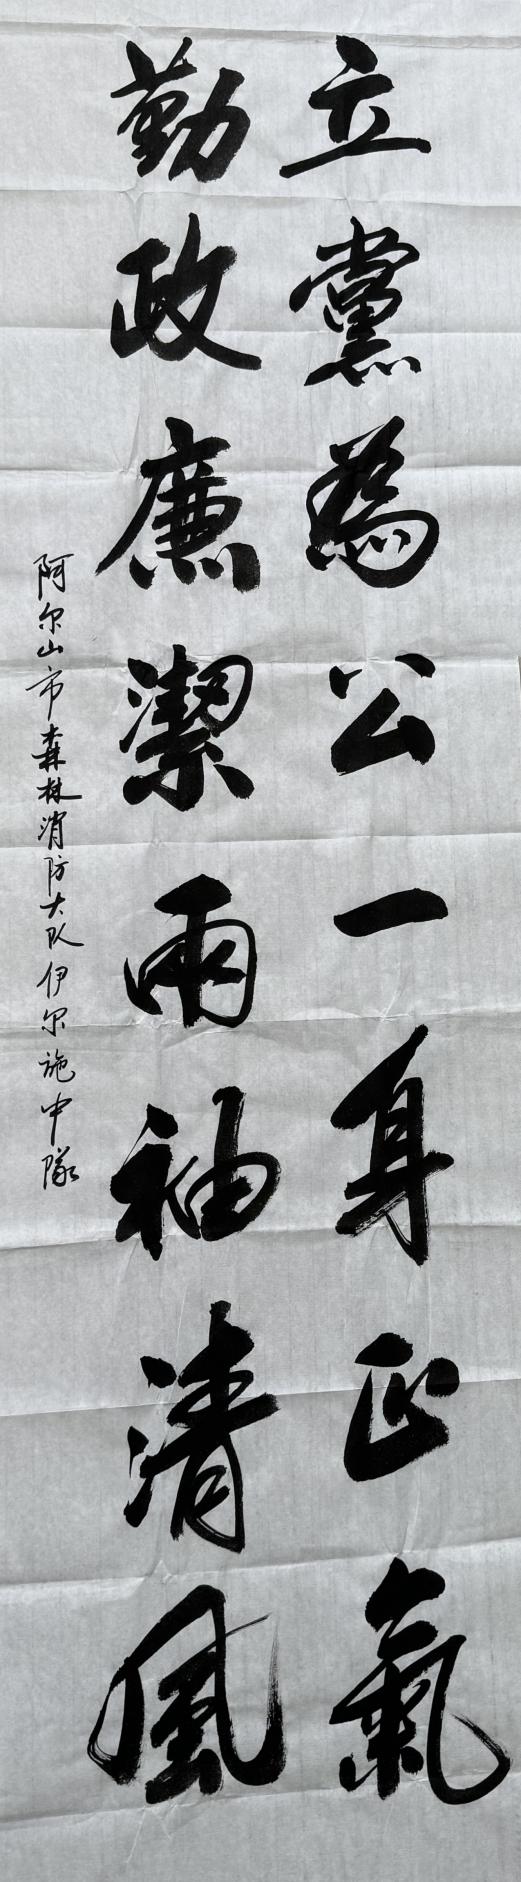 立黨爲公一身正氣
勤政廉潔兩袖清風
阿尔山市森林消防大队伊尔施中隊